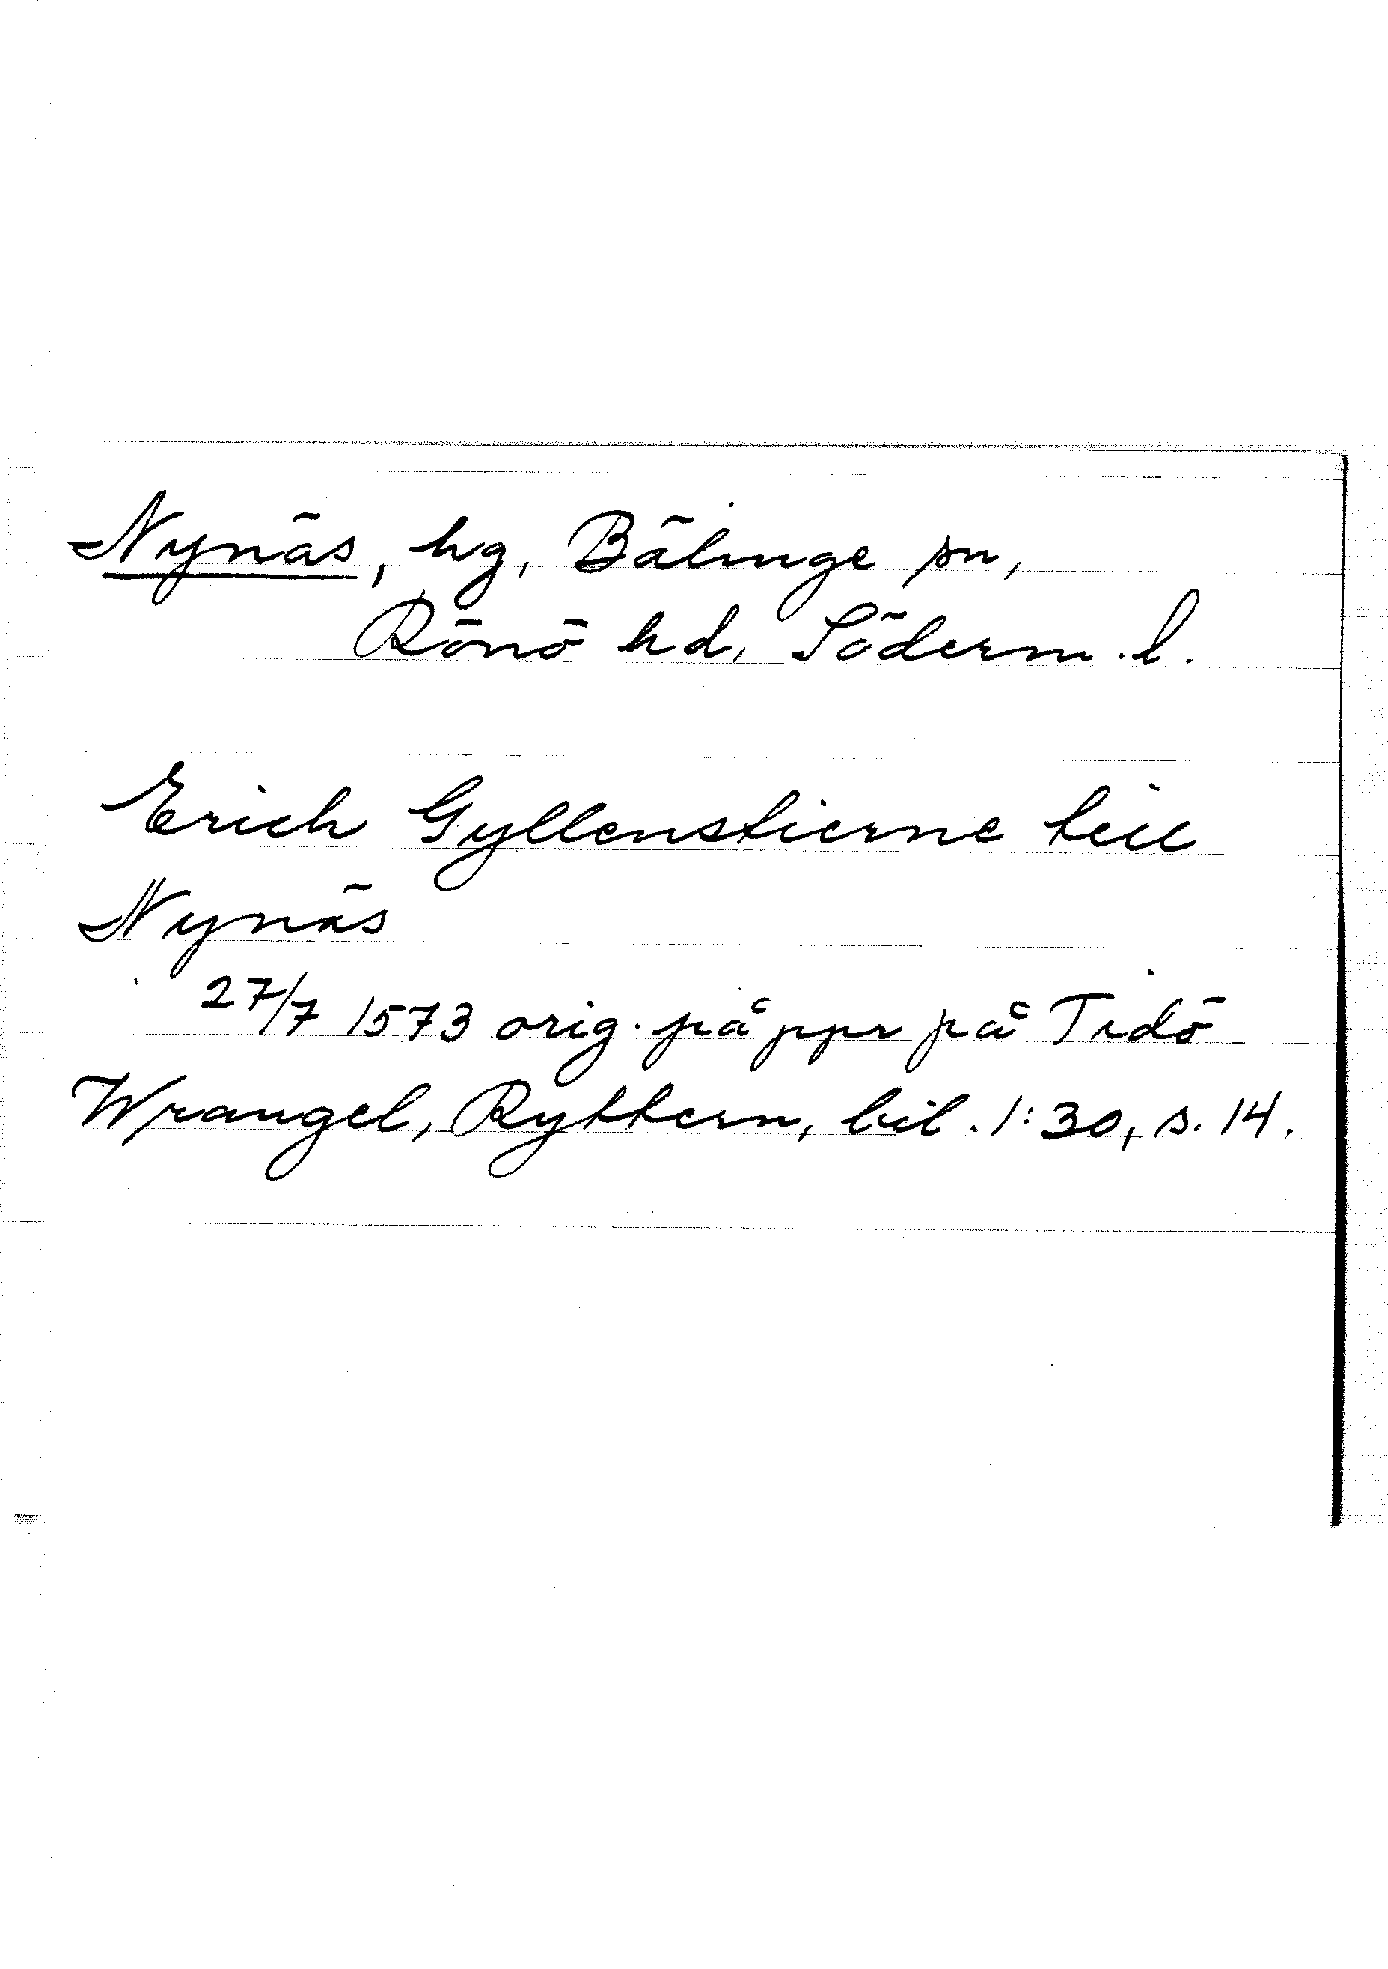 Nynäs, hg, Bälinge sn,
Rönö hd, Söderm. l.
Erich Gyllenstierne teil
Nynäs
27/7 1573 orig. på ppr på Tidö
Wrangel, Ryttern, bil. 1:30, s. 14.